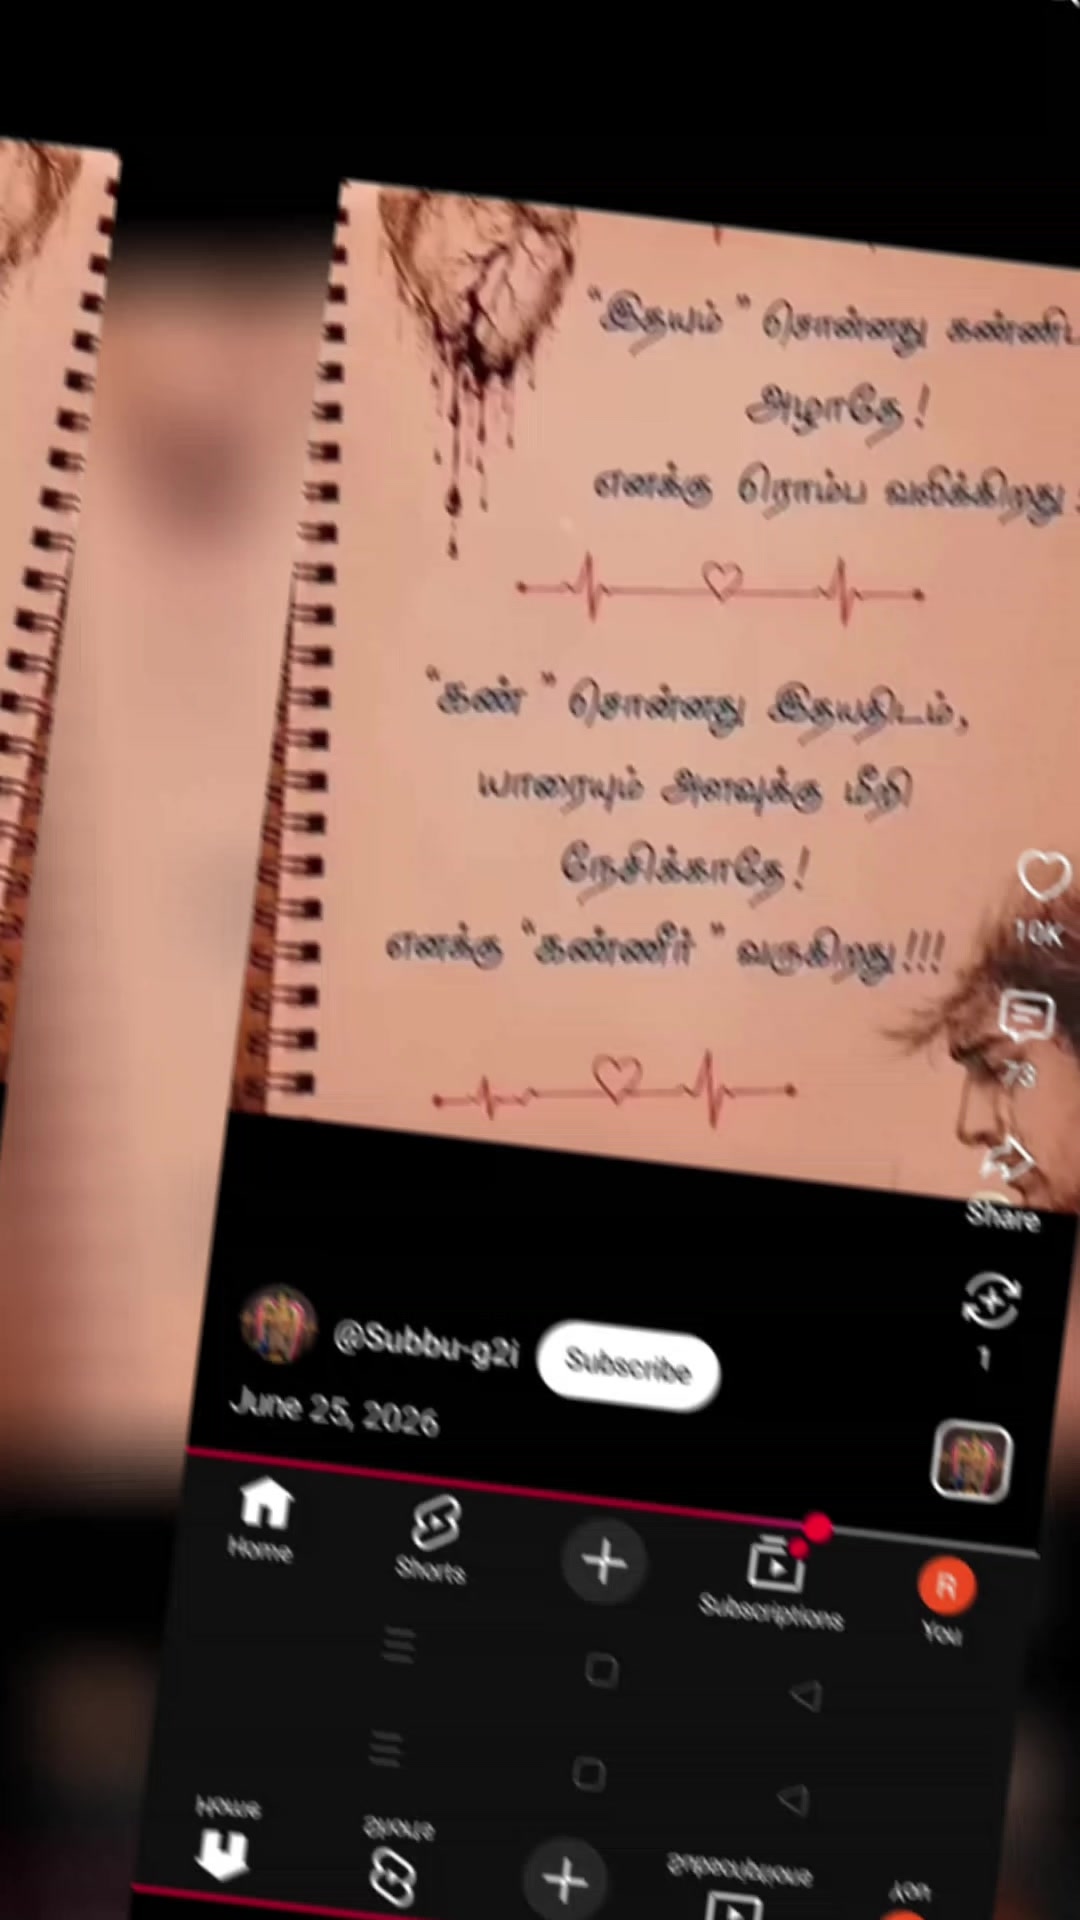 "இதயம் " சொன்னது
அழாதே !
எனக்கு ரொம்ப வலிக்கிறது
"கண் " சொன்னது இதயதிடம்,
யாரையும் அளவுக்கு மீறி
நேசிக்காதே !
எனக்கு "கண்ணீர் " வருகிறது !!!
10K
73
Share
1
@Subbu-g2i
Subscribe
June 25, 2026
Home
Shorts
Subscriptions
R
You
Home
Shorts
Subscriptions
You